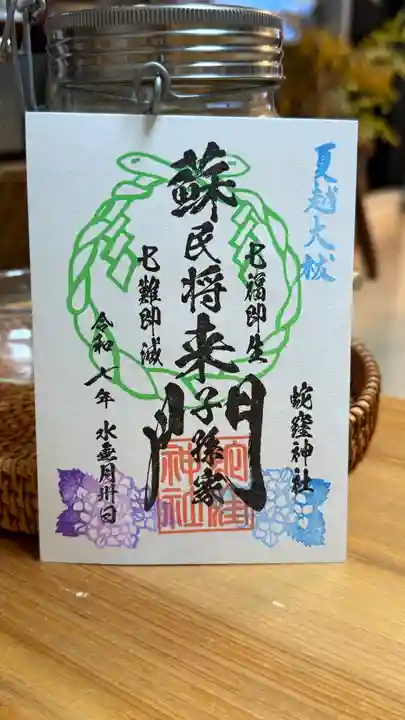 夏越大祓
七福即生
蛇窪神社
蘇民将来子孫家門
七難即滅
令和七年 水無月卅日
蛇窪神社